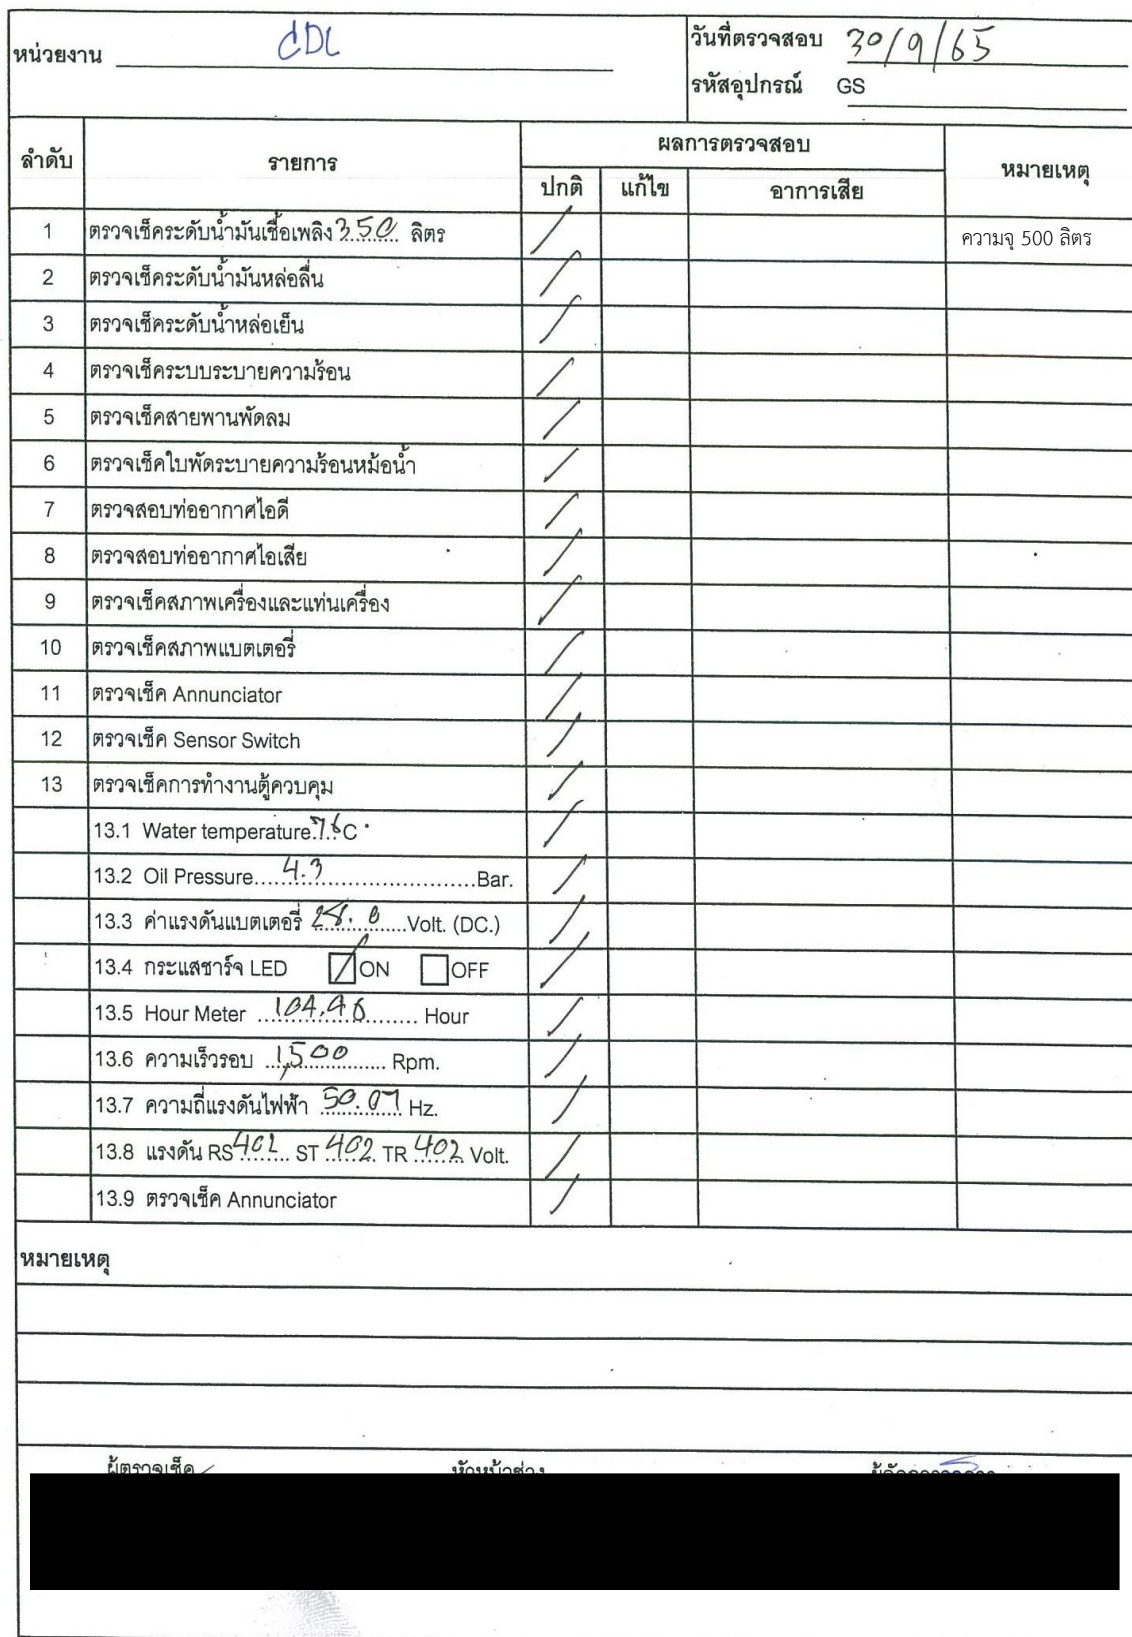 หน่วยงาน CDL
วันที่ตรวจสอบ 30/9/65
รหัสอุปกรณ์ GS
ลำดับ รายการ ผลการตรวจสอบ หมายเหตุ
ปกติ แก้ไข อาการเสีย
1 ตรวจเช็คระดับน้ำมันเชื้อเพลิง 350 ลิตร / ความจุ 500 ลิตร
2 ตรวจเช็คระดับน้ำมันหล่อลื่น /
3 ตรวจเช็คระดับน้ำหล่อเย็น /
4 ตรวจเช็คระบบระบายความร้อน /
5 ตรวจเช็คสายพานพัดลม /
6 ตรวจเช็คใบพัดระบายความร้อนหม้อน้ำ /
7 ตรวจสอบท่ออากาศไอดี /
8 ตรวจสอบท่ออากาศไอเสีย /
9 ตรวจเช็คสภาพเครื่องและแท่นเครื่อง /
10 ตรวจเช็คสภาพแบตเตอรี่ /
11 ตรวจเช็ค Annunciator /
12 ตรวจเช็ค Sensor Switch /
13 ตรวจเช็คการทำงานตู้ควบคุม /
13.1 Water temperature 76 C /
13.2 Oil Pressure....4.3....Bar. /
13.3 ค่าแรงดันแบตเตอรี่ ....Volt. (DC.) /
13.4 กระแสชาร์จ LED ON OFF /
13.5 Hour Meter ........ Hour /
13.6 ความเร็วรอบ ..1,500.. Rpm. /
13.7 ความถี่แรงดันไฟฟ้า 50.07 Hz. /
13.8 แรงดัน RS 402 ST 402 TR 402 Volt. /
13.9 ตรวจเช็ค Annunciator /
หมายเหตุ
ผู้ตรวจเช็ค หัวหน้าช่าง